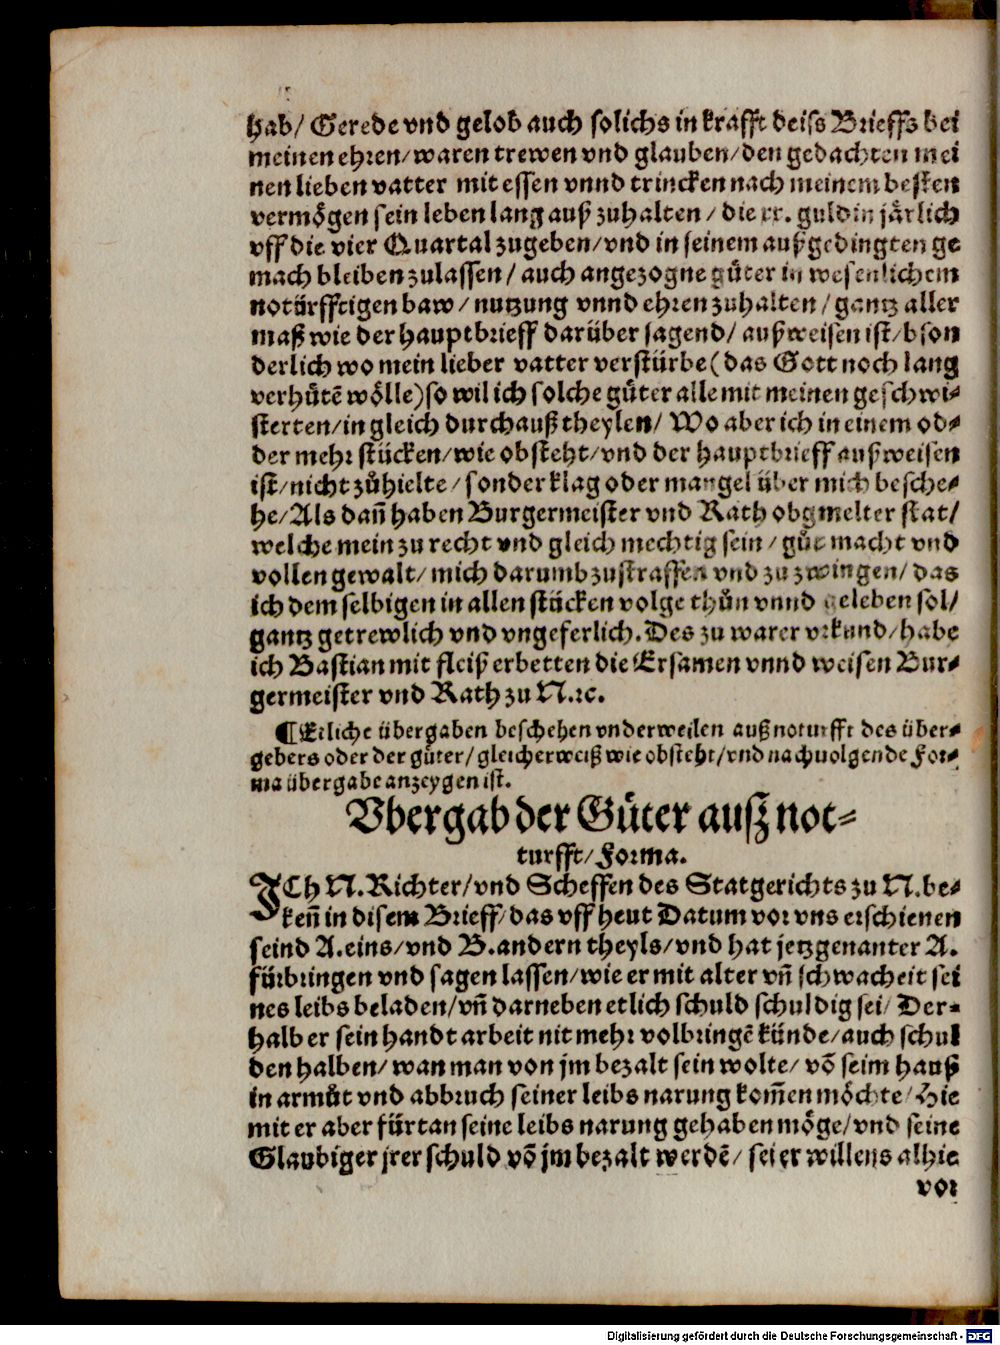 hab/ Gerede vnd gelob auch solichs in krafft deiss Brieffs bei
meinen ehren/waren trewen vnd glauben/den gedachten mei
nen lieben vatter mit essen vnnd trincken nach meinem besten
vermögen sein leben lang auß zuhalten/ die xx. guldin järlich
vff die vier Quartal zugeben/vnd in seinem außgedingten ge
mach bleiben zulassen/ auch angezogne güter in wesenlichem
notürfftigen baw/ nutzung vnnd ehren zuhalten/ gantz aller
maß wie der hauptbrieff darüber sagend/ außweisen ist/bson
derlich wo mein lieber vatter verstürbe(das Gott noch lang
verhütē wölle)so wil ich solche güter alle mit meinen geschwi⸗
sterten/in gleich durchauß theylen/ Wo aber ich in einem od⸗
der mehr stücken/wie obsteht/vnd der hauptbrieff außweisen
ist/nicht zůhielte/sonder klag oder mangel über mich besche⸗
he/Als dañ haben Burgermeister vnd Rath obgmelter stat/
welche mein zu recht vnd gleich mechtig sein/ gůt macht vnd
vollen gewalt/ mich darumb zustraffen vnd zu zwingen/ das
ich dem selbigen in allen stücken volge thůn vnnd geleben sol/
gantz getrewlich vnd vngeferlich. Des zu warer vrkund/habe
ich Bastian mit fleiß erbetten die Ersamen vnnd weisen Bur⸗
germeister vnd Rath zu N.ꝛc.
¶Etliche übergaben beschehen vnderweilen auß noturfft des über⸗
gebers oder der güter/gleicherweiß wie obsteht/vnd nachuolgende For⸗
ma übergabe anzeygen ist.
Vbergab der Güter ausz not⸗
turfft/Forma.
ICh N. Richter/vnd Scheffen des Statgerichts zu N. be⸗
keñ in disem Brieff/das vff heut Datum vor vns erschienen
seind A. eins/vnd B. andern theyls/vnd hat jetzgenanter A.
fürbringen vnd sagen lassen/wie er mit alter vñ schwacheit sei
nes leibs beladen/vñ darneben etlich schuld schuldig sei/ Der⸗
halb er sein handt arbeit nit mehr volbringē künde/auch schul
den halben/ wan man von jm bezalt sein wolte/ võ seim hauß
in armůt vnd abbruch seiner leibs narung kom̃en möchte/Hie
mit er aber fürtan seine leibs narung gehaben möge/vnd seine
Glaubiger jrer schuld võ jm bezalt werdē/ sei er willens alhie
vor
Digitalisierung gefördert durch die Deutsche Forschungsgemeinschaft - DFG